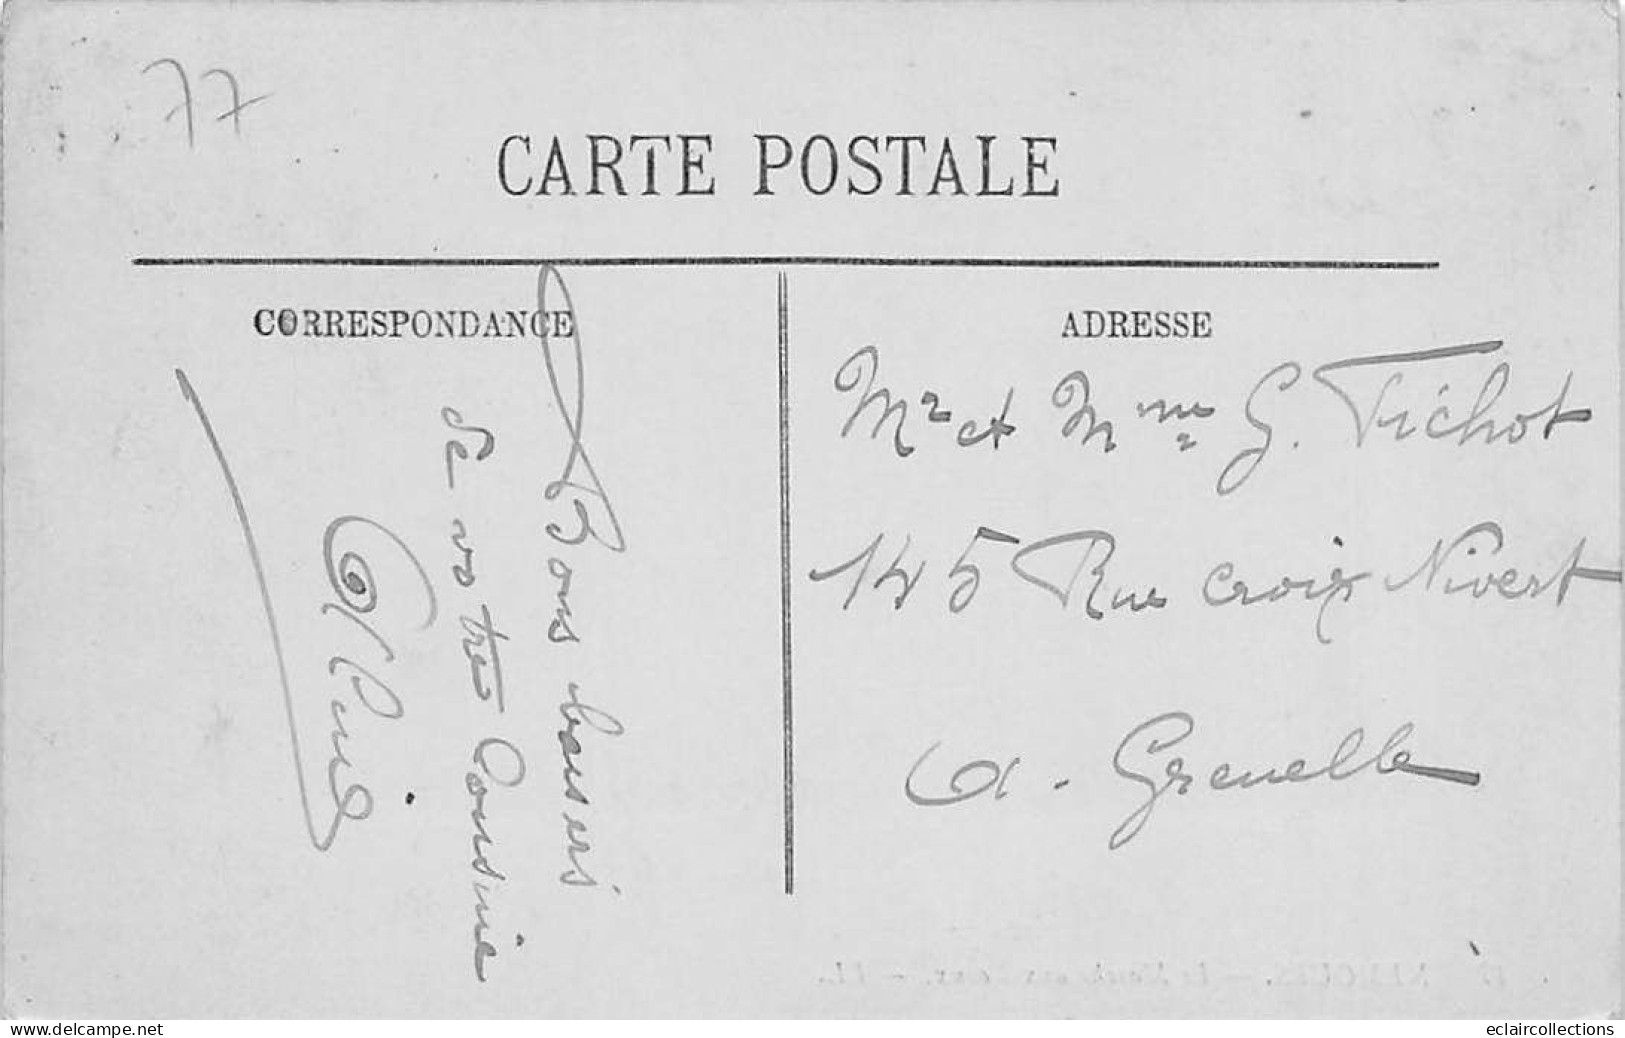 77
CARTE POSTALE
CORRESPONDANCE
Bons baisers
de votre Cousine
ADRESSE
Mr et Mme G. Fichot
145 Rue Croix Nivert
a. Grenelle
delcampe.net
eclaircollections